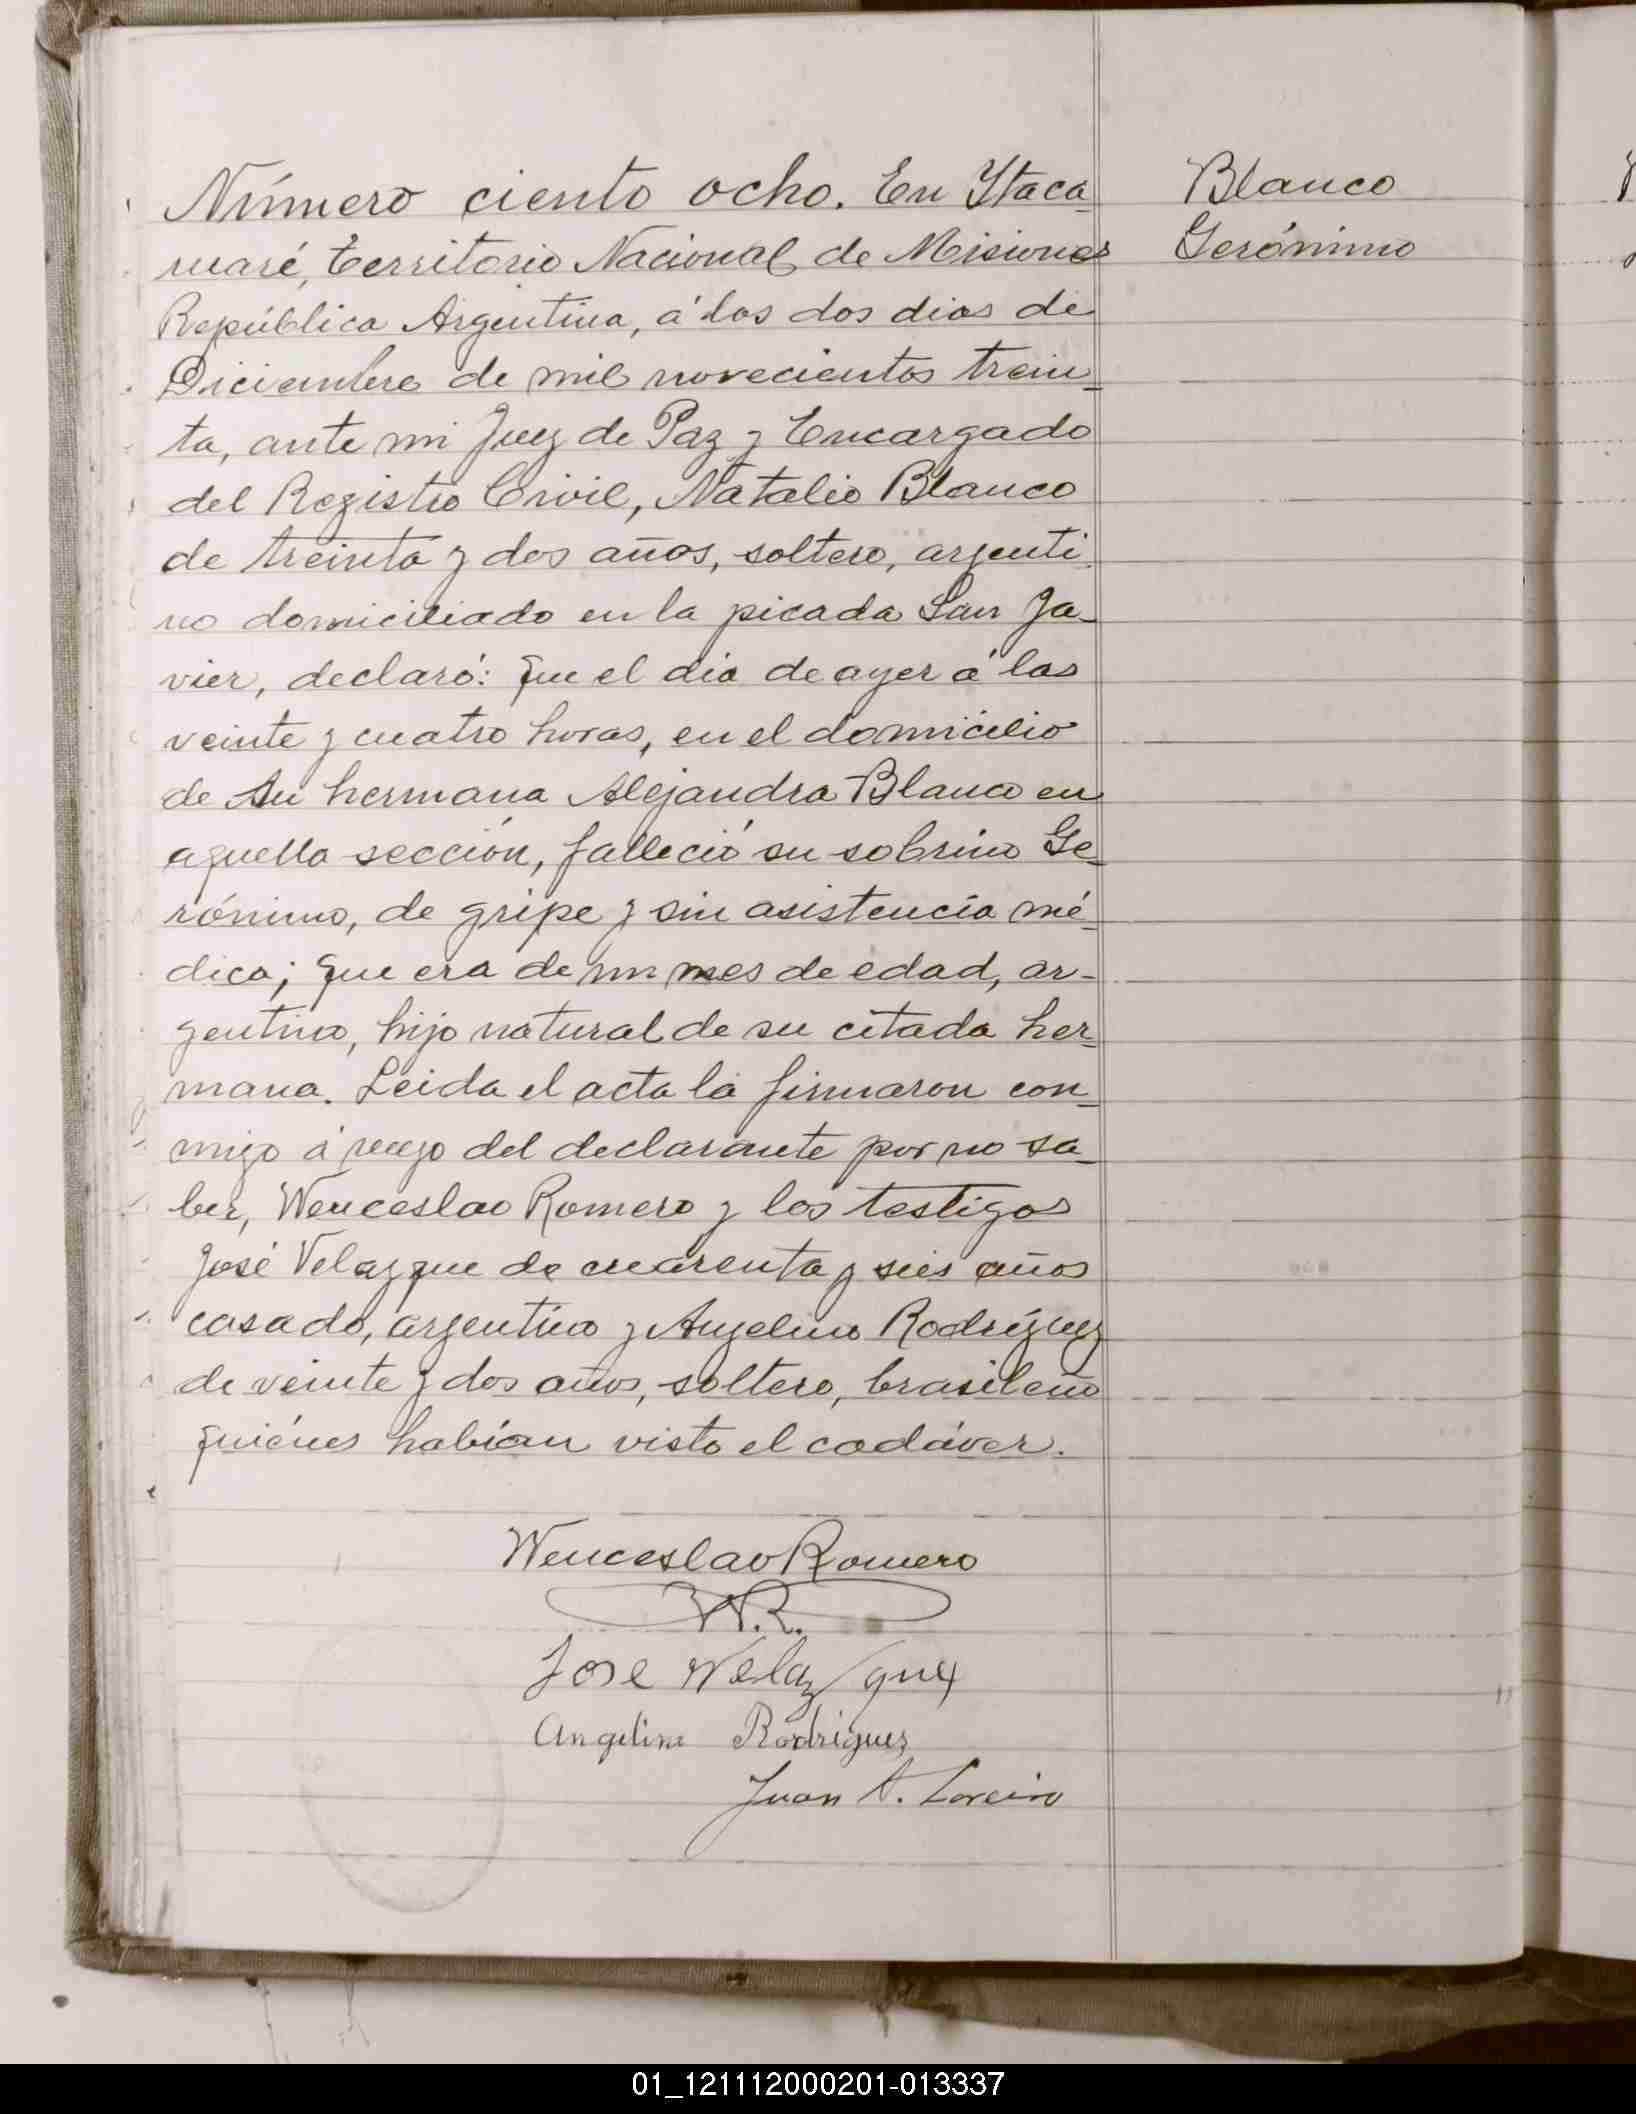 Número ciento ocho. En Ytaca-
ruaré, territorio Nacional de Misiones
República Argentina, á los dos dias de
Diciembre de mil novecientos trein-
ta, ante mi Juez de Paz y Encargado
del Registro Civil, Natalio Blanco
de treinta y dos años, soltero, argenti-
no domiciliado en la picada San Ja-
vier, declaró: que el dia de ayer á las
veinte y cuatro horas, en el domicilio
de su hermana Alejandra Blanco en
aquella sección, falleció su sobrino Ge-
rónimo, de gripe y sin asistencia mé-
dica; que era de un mes de edad, ar-
gentino, hijo natural de su citada her-
mana. Leida el acta la firmaron con-
migo á ruego del declarante por no sa-
ber, Wenceslao Romero y los testigos
José Velazque de cuarenta y seis años
casado, argentino y Angelino Rodríguez
de veinte y dos años, soltero, brasileño
quiénes habían visto el cadáver.
Blanco
Gerónimo
Wenceslao Romero
W.R.
Jose Velazquez
Angelino Rodriguez
Juan A. Loreiro
01_121112000201-013337